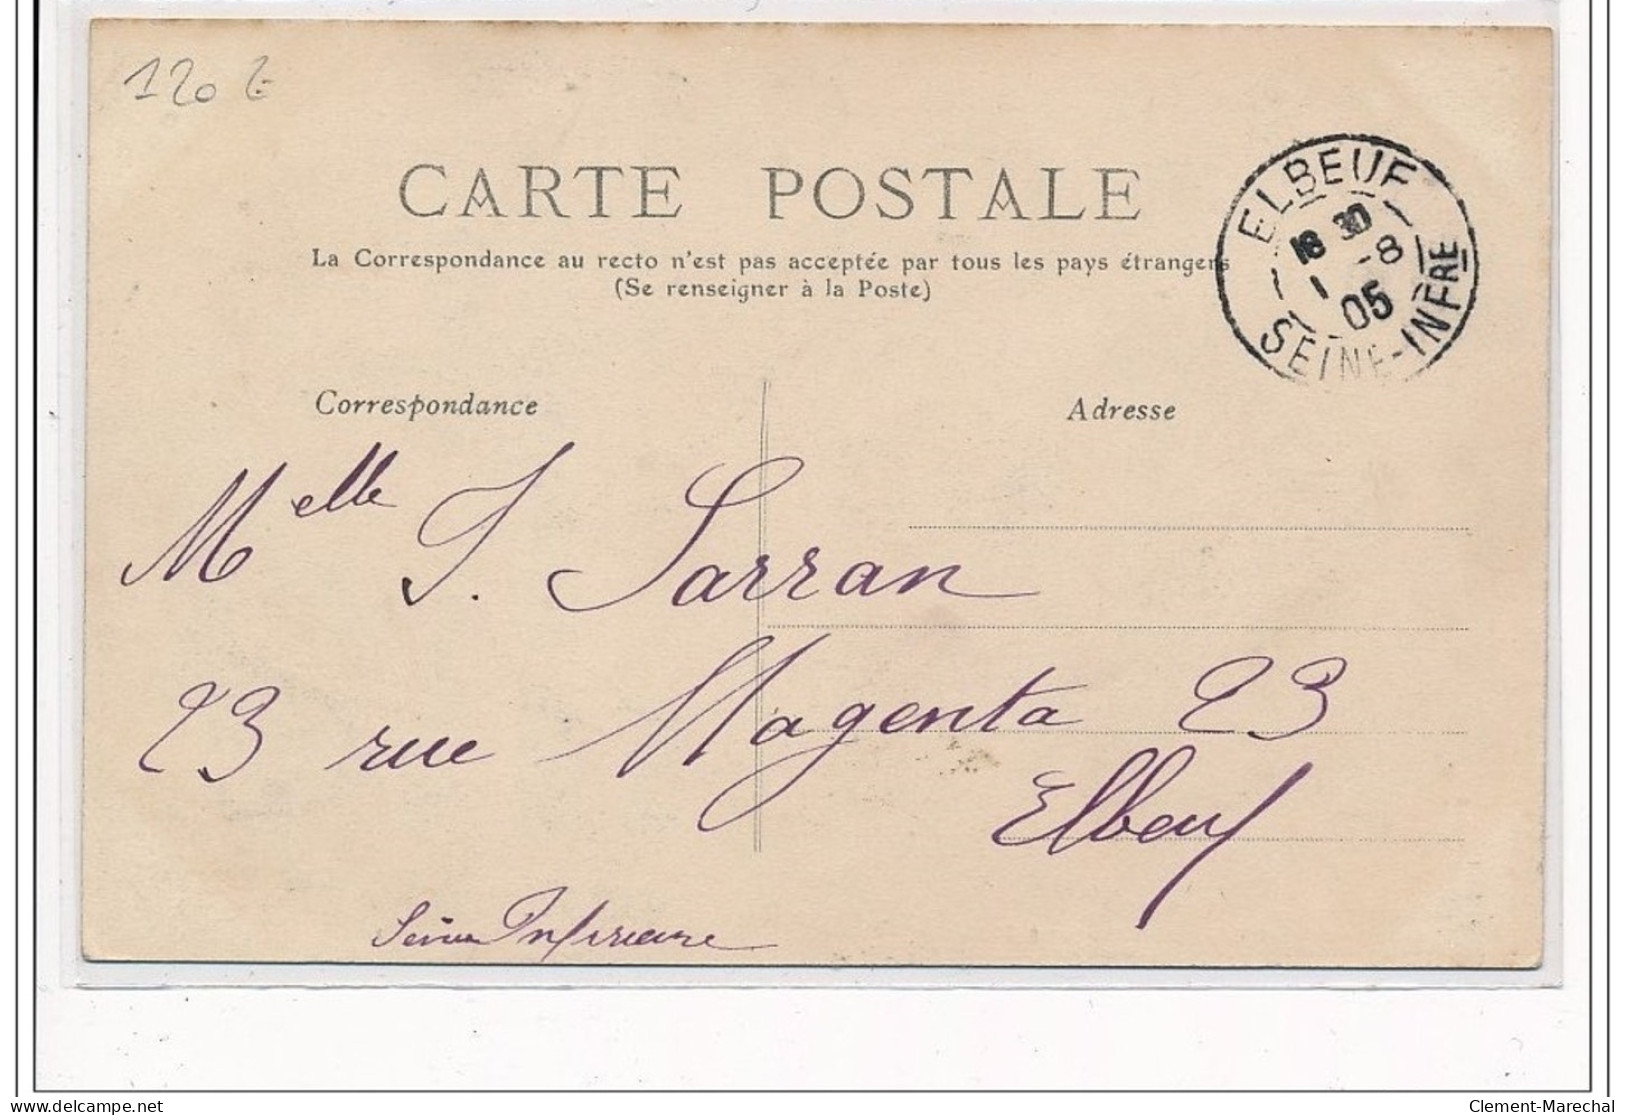 120 €
CARTE POSTALE
La Correspondance au recto n'est pas acceptée par tous les pays étrangers
(Se renseigner à la Poste)
ELBEUF
18 30
1 -8
05
SEINE-INFRE
Correspondance
Adresse
Melle S. Sarran
23 rue Magenta 23
Elbeuf
Seine Inférieure
Clement-Marechal